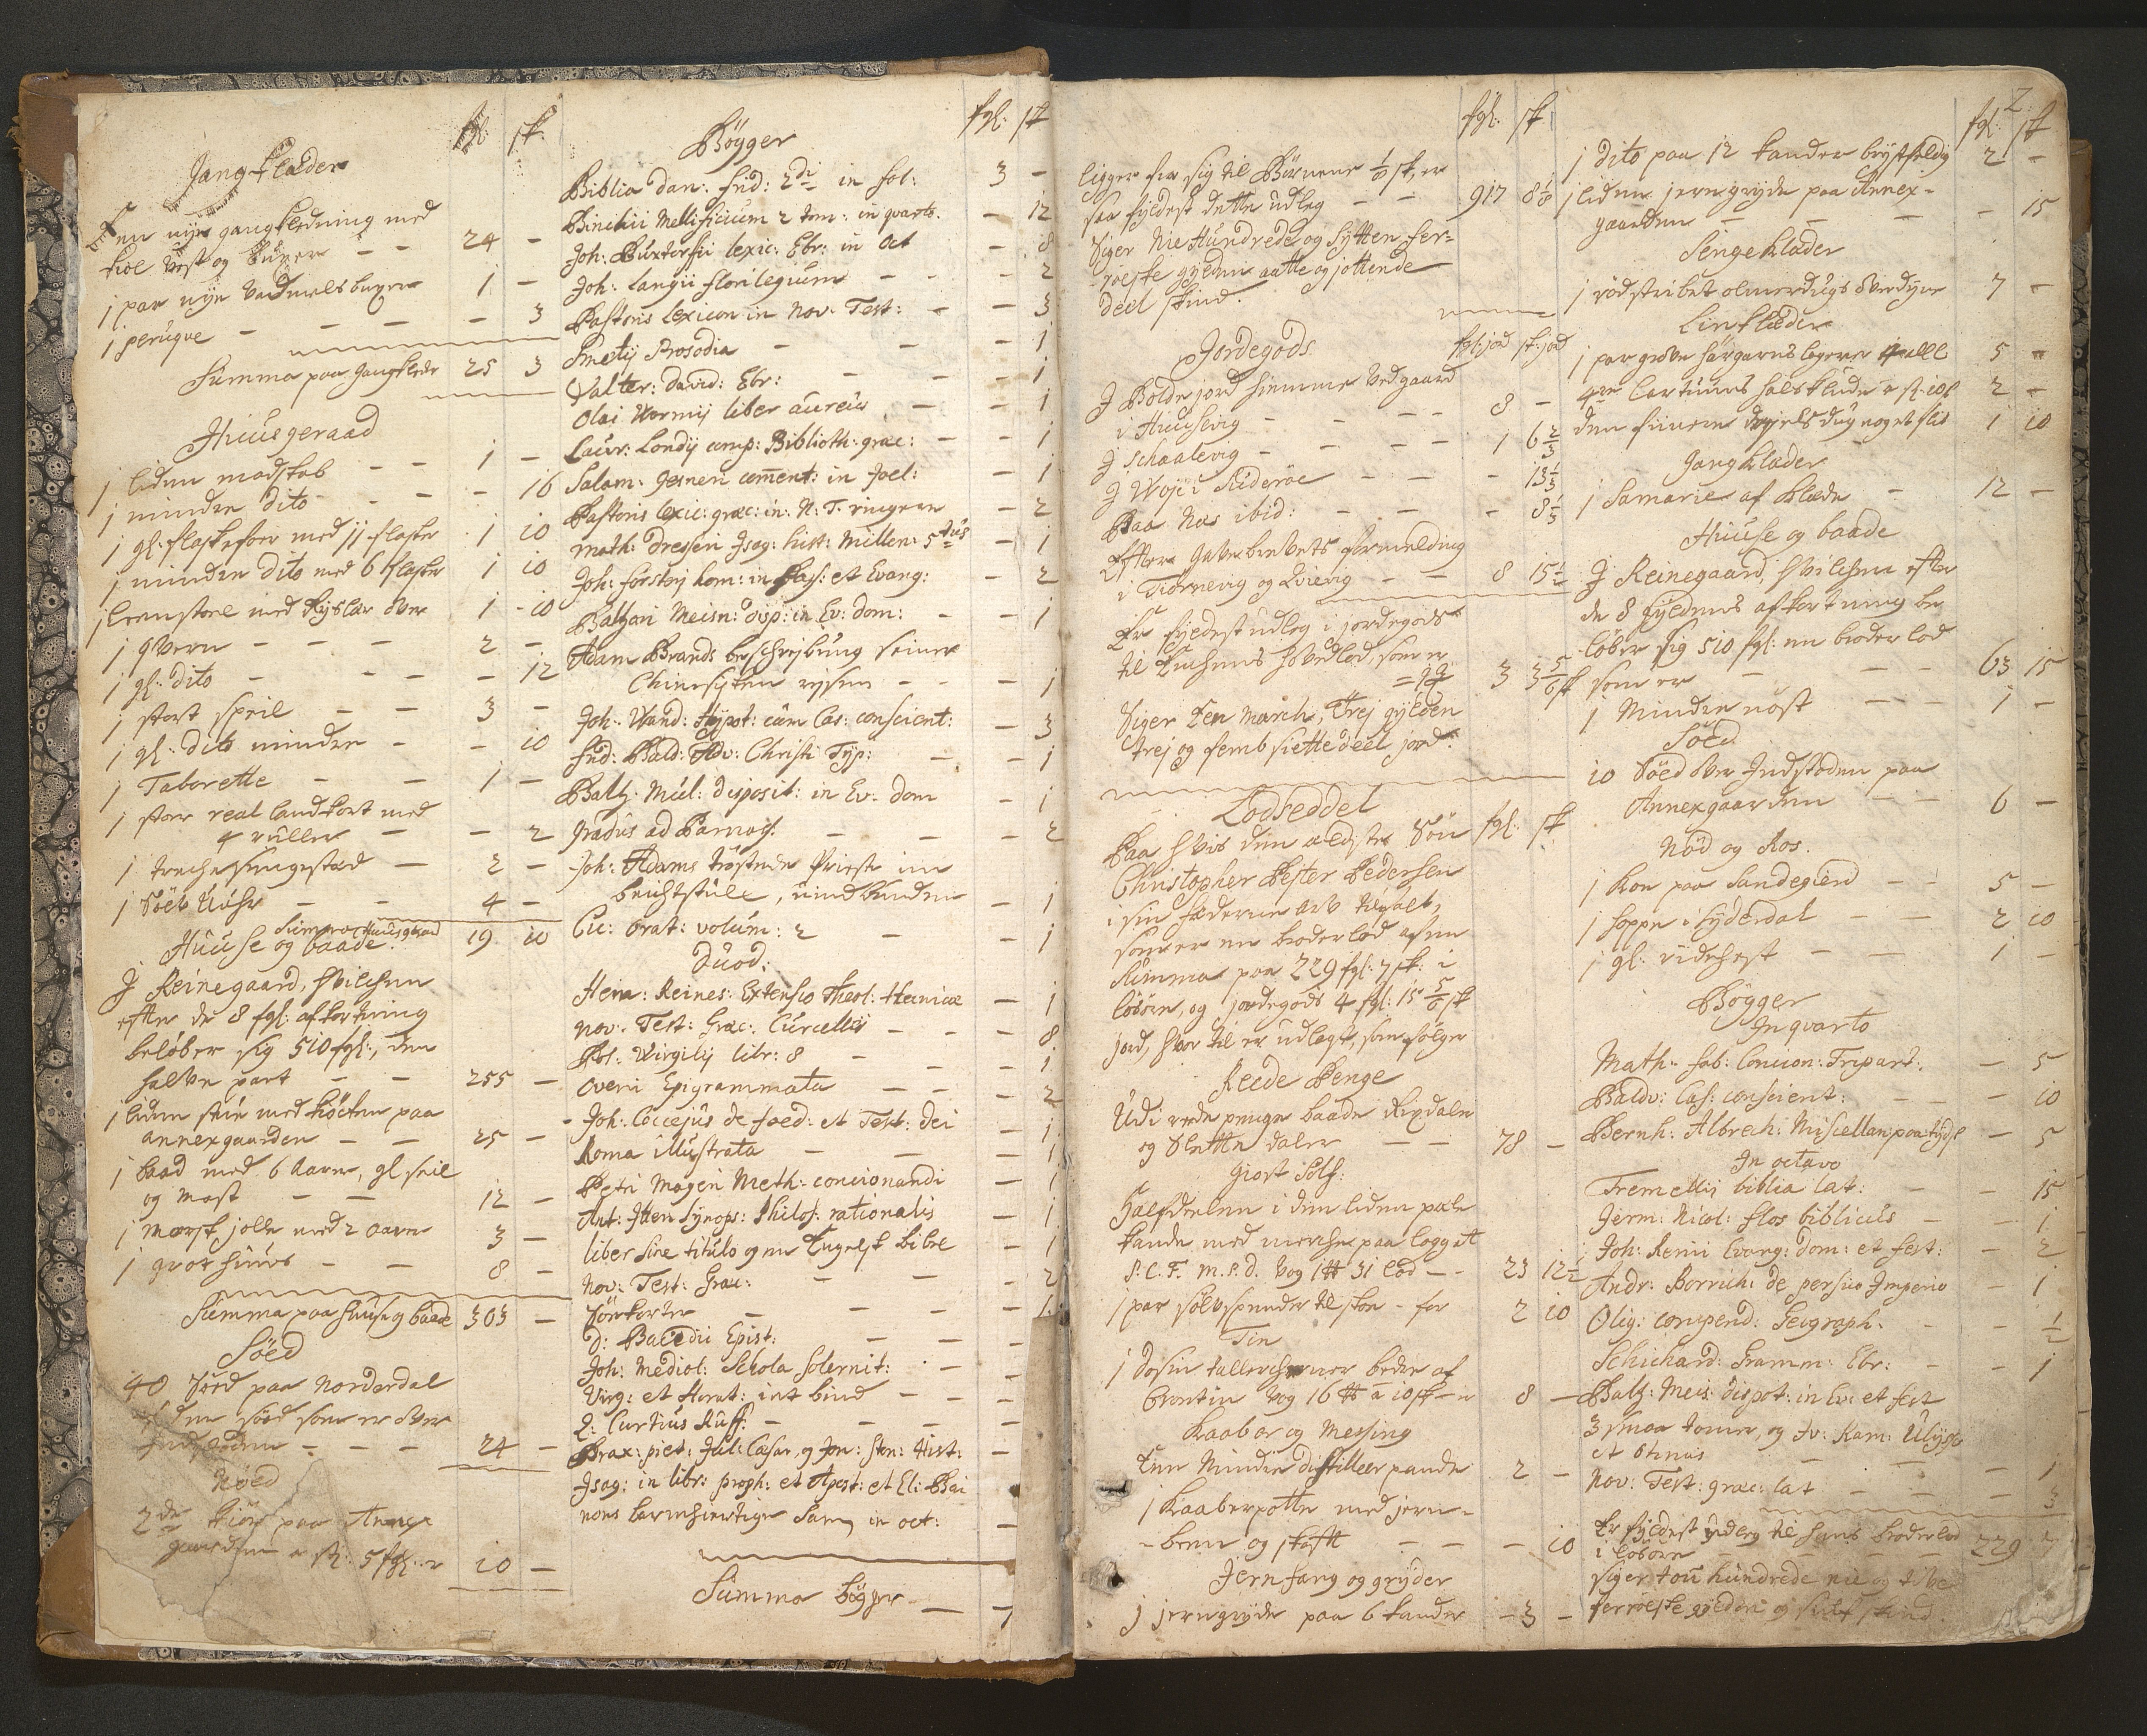 fgl: sk:
Gangklæder
Een nye gangkledning med
kiol vest og buxer - - 24 -
1 par nye vadmels buxer 1 -
1 peruqve - - - - 3
Summa paa Gangklæder 25 3
Huusgeraad
1 liden madskab - - 1 -
1 mindre dito - - - 16
1 gl: flaskefoer med 11 flasker 1 10
1 mindre dito med 6 flasker 1 10
1 leenstoel med Ryslær over 1 10
1 qvern - - - 2 -
1 gl: dito - - - 12
1 stort speil - - 3 -
1 gl: dito mindre - - 10
1 Taborette - - 1 -
1 stor real landkort med
4 ruller - - 2
1 trechesengested - 2 -
1 Söeb Uühr - - 4 -
Summa Huusgeraad 19 10
Huuse og baade.
J Reinegaard, hvilchen
efter de 8 fgl: afkortning
beløber sig 510 fgl:, den
halve part - - 255 -
1 liden med paa
annexgaarden - - 25 -
1 baad med 6 Aarer, gl seil
og Mast - - 12 -
1 Norsk jolle med 2 aarer 3 -
1 grot huus - - 8 -
Summa paa huuse og baade 303 -
Söed
40 Söed paa Norderdal
den söed som er over
Indstøden - - - 24 -
Nöed
2de kiör paa Annex
gaarden a st: 5 fgl: er 10 -
fgl: sk
Bøgger
Biblia dan: Fnd: 2di in fol: 3 -
Binchii Mellificium 2 tom: in qvarto. - 12
Joh: Buxtorfii lexic: Ebr: in Oct - 8
Joh: Langii florilegium - - - 2
Pastoris Lexicon in Nov: Test: - - 3
Smetij Prosodia - - - 1
Psalter: David: Ebr: - - - 1
Olai Wormij liber aureus - - 1
Laur: Londij comp: Biblioth: græc: - - 1
Salom: Gesneri coment: in Joel: - 1
Pastoris lexic: græc: in: N: T. ringere - 2
Math: Dresseri Isag: hist: Millen: 5tus - 1
Joh: Forsterj kom: in Pass: et Evang: - 2
Baltzari Meisn: disp: in Ev: dom: - 1
Adam Brands beschrejbung seiner
Chinesijten rejsen - - - 1
Joh: Wand: Hypot: cum Cas: conscient: - 3
Frid: Bald: Adv: Christi Typ: - - 1
Baltz: Mul: disposit: in Ev: dom - 1
Gradus ad Parnass. - - - 2
Joh: Adams trøstende Priester im
beichtstule, uindbunden - 1
Cic: Orat: volum: 2 - - 1
Duod:
Henr: Reines: Extensio Theol: - 1
Nov: Test: Græc: Curcellij - - - 8
Pol: Virgilij libr: 8 - - - 1
Oveni Epigrammata - - - 2
Joh: Coccejus de foed: et Test: Dei - 1
Roma illustrata - - - 1
Petri Mageri Meth: concionandi - 1
Ant: Itten Synops: Philos: rationalis - 1
liber sine titulo og en Engelsk bibel - 1
Nov: Test: Græc: - - - 2
Söekorter - - - - 1
D: Epist: - - -
Joh: Mediol: Schola Solernit: - -
Virg: et Horat: int bind - - -
Q: Curtius Ruff: - - - -
Prax: piet: Jul: Cæsar og Jon: Ston: Hist: -
Isag: in libr: proph: et Apost: et El: Bai
nons barmhiertige Sam in oct: -
Summa bögger - -
fgl: sk
ligger fra sig til Börnene 1/8 sk, er
saa fyldest dette udleg - - 917 8 1/8
Siger Nie Hundrede og Sytten Fer-
roeske gylden aatte og jottende
deel skind.
Jordegods fgl: jord sk: jord
J Bolde jord hiemme ved gaard
i Huusevig - - - 8 -
J Schaalevig - - - 1 6 2/3
J Waji Suderöe - - - 13 1/3
Paa Næs ibid: - - - 8 1/3
Effter Gavebrevets formelding
i Tiörnevig og Qvivig - - 8 15 1/2
Er fyldest udleg i jordegods
til Enchens hovedlod, som er
= 19 3 3 5/6 sk
Siger Een March, Trej gylden
trej og femb siette deel jord.
Lodseddel
Paa hvis den ældste Sön fgl: sk
Christopher Pejter Pedersen
i sin fæderne arv tilfalt,
som er en broderlod af en
Summa paa 229 fgl: 7 sk: i
lösöre, og jordegods 4 fgl: 15 5/6 sk
jord, hvor til er udlagt, som følger
Reede Penge
Udi rede penge baade Rixdaler
og Slette daler - - 78 -
Giort Sölf:
Halfdeelen i den liden pæle
kande med merche paa logget
P. C. F. M. S. D. vog 1 tt 31 lod - - 23 12 1/2
1 par sölvspender til skoe - for 2 10
Tin
1 dosin tallercherner bedre af
Crontin vog 16 tt a 10 sk - er 8 -
Kaabor og Messing
Een Mindre distilleer pande 2 -
1 Kaaberpotte med jern-
-been og skaft - - - 10
Jernfang og gryder
1 jerngryde paa 6 kander - 3 -
2
fgl: sk
1 dito paa 12 kander brystfeldig 2 -
1 liden jerngryde paa Annex-
gaarden - - - - 15
Sengeklæder
1 rödstribet olmerdugs Overdyne 7 -
Linklæder
1 par grove hörgarns lagener 4 all 5 -
4re Cartuuns halsklude a st: 10 sk 2 -
den finere drejels dug noget slid 1 10
Gangklæder
1 Samarie af klæde - 12 -
Huuse og baade
J Reinegaard, hvilchen efter
de 8 gyldens afkortning be-
löber sig 510 fgl: en broder lod
som er - - - 63 15
1 Mindre nöst - - 1 -
Söed
10 Söed over Indstøden paa
Annexgaarden - - 6 -
Nöd og Ros.
1 koe paa Sandegierd - - 5 -
1 hoppe i Syderdal - - 2 10
1 gl: ridehest - - 1 -
Bögger
In qvarto
Math: Fab: Concion: Tripart: - 5
Baldv: Cas: conscient: - - 10
Bernh: Albrech: Miscellan paa tydsk - 5
In octavo
Tremellij biblia lat: - - 15
Jerm: Nicol: flos biblicus - - 1
Joh: Remi Evang: dom: et fest: - 2
Andr: Borrich: de persico Imperio - 1
Olig: compend: Geograph: - - 1/2
Schichard: Gramm: Ebr: - - 1
Baltz: Meis: dispot: in Ev: et fest
3 smaa tomer, og Jv: Ram: Ulyss
et - - - 1
Nov: Test: græc: lat - - - 3
Er fyldest udleg til hans broderlod
i lösöre - - - 229 7
siger tou hundrede nie og tive
ferröeske gylden og siuf skind